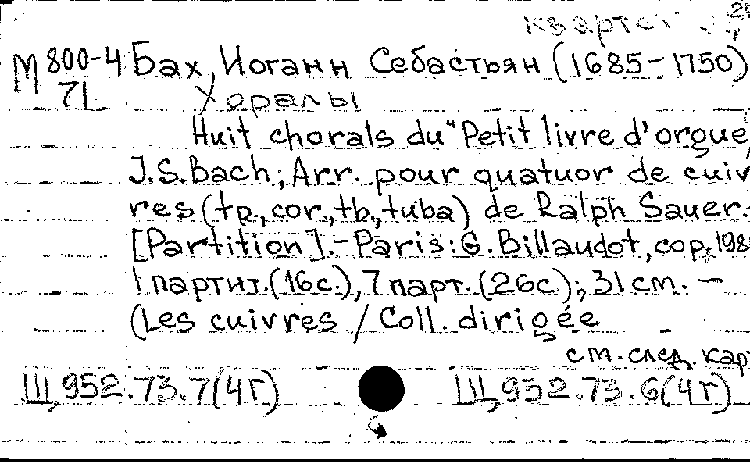 квартет
М 800-4 Бах, Иоганн Себастьян (1685-1750)
71 Хоралы
Huit chorals du "Petit livre d'orgue,
J.S.Bach; Arr. pour quatuor de cuiv
res (tp, cor., tb, tuba) de Ralph Sauer.
[Partition].- Paris: G. Billaudot, cop. 198
1 партит. (16с.), 7 парт. (26с); 31 cm. —
(Les cuivres / Coll. dirigée
см. след. кар
III, 952.73.7(4Г) III, 932.73.6(4Г)